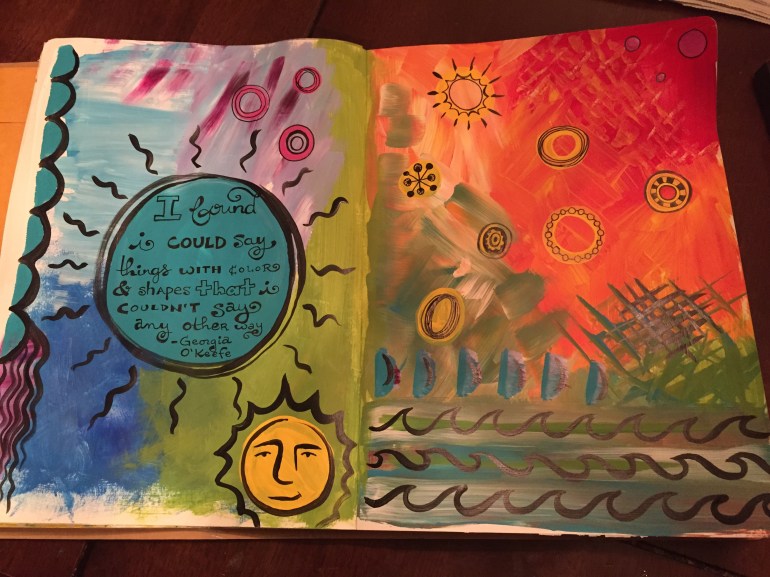 I found
i COULD say
things WITH COLOR
& shapes that i
COULDN'T say
any other way
-Georgia
O'Keefe